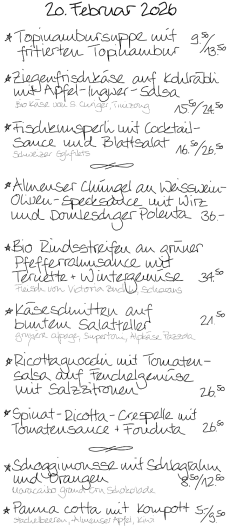 20. Februar 2026
* Topinambursuppe mit 9.50/
frittierten Topinambur 13.50
* Ziegenfrischkäse auf Kohlrabi
mit Apfel-Ingwer-Salsa
Bio Käse von 15.50/24.50
* Fischknusperli mit Cocktail-
sauce und Blattsalat 16.50/26.50
Schweizer
* Almenser Chüngel an Weisswein-
Oliven-Specksauce mit Wirz
und Domleschger Polenta 36.-
* Bio Rindsstreifen an grüner
Pfefferrahmsauce mit
+ Wintergemüse 34.50
Fleisch von Victoria Scharans
* Käseschnitten auf
buntem Salatteller 21.50
* Ricottagnocchi mit Tomaten-
salsa auf Fenchelgemüse
mit Salzzitronen 26.50
* Spinat-Ricotta-Crespelle mit
Tomatensauce + Fonduta 26.50
* Schoggimousse mit Schlagrahm
und Orangen 8.50/12.50
Maracaibo grand cru Schokolade
* Panna cotta mit Kompott 5/9.50
Stachelbeeren, Almenser Äpfel, Kiwi